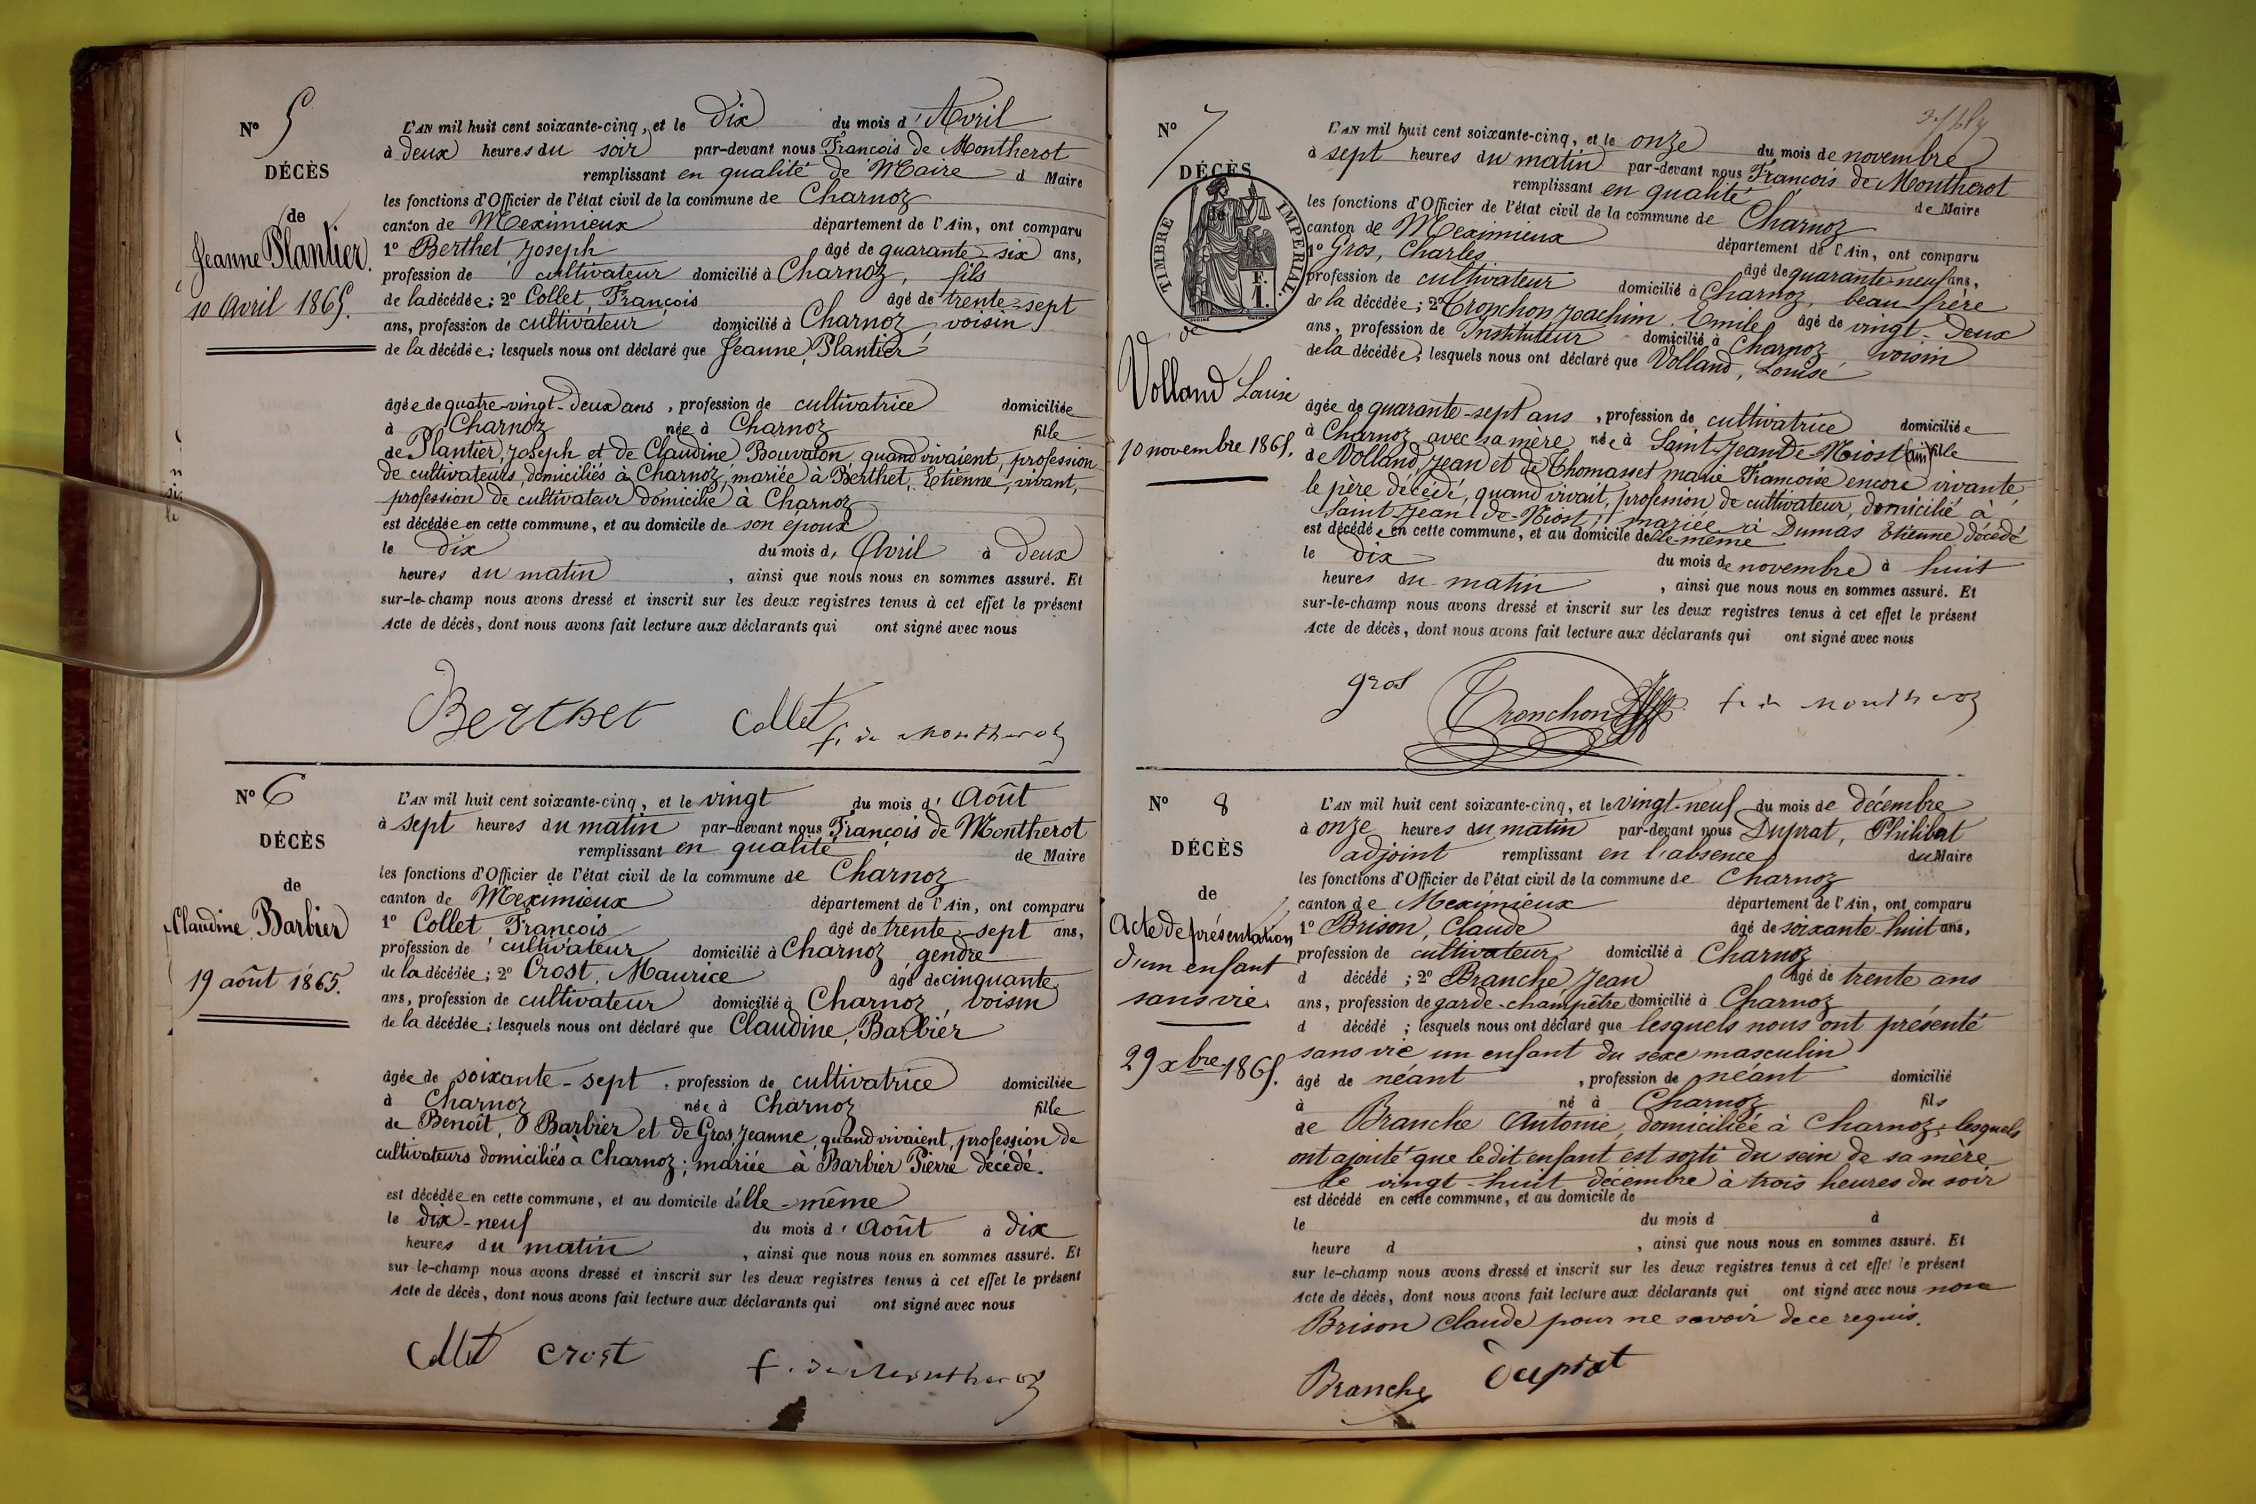 N° 5
DÉCÈS
de
Jeanne Plantier.
10 Avril 1865.
L'AN mil huit cent soixante-cinq, et le dix du mois d'Avril
à deux heures du soir par-devant nous François de Montherot
remplissant en qualité de Maire d Maire
les fonctions d'Officier de l'état civil de la commune de Charnoz
canton de Meximieux département de l'Ain, ont comparu
1° Berthet, Joseph âgé de quarante-six ans,
profession de cultivateur domicilié à Charnoz, fils
de la décédée; 2° Collet, François âgé de trente-sept
ans, profession de cultivateur domicilié à Charnoz, voisin
de la décédée; lesquels nous ont déclaré que Jeanne, Plantier
âgée de quatre-vingt-deux ans, profession de cultivatrice domiciliée
à Charnoz née à Charnoz fille
de Plantier, Joseph et de Claudine Bouvaton, quand vivaient, profession
de cultivateurs domiciliés à Charnoz, mariée à Berthet, Etienne, vivant,
profession de cultivateur domicilié à Charnoz
est décédée en cette commune, et au domicile de son époux
le dix du mois d'Avril à deux
heures du matin, ainsi que nous nous en sommes assuré. Et
sur-le-champ nous avons dressé et inscrit sur les deux registres tenus à cet effet le présent
Acte de décès, dont nous avons fait lecture aux déclarants qui ont signé avec nous
Berthet Collet f. de Montherot
N° 6
DÉCÈS
de
Claudine Barbier
19 août 1865.
L'AN mil huit cent soixante-cinq, et le vingt du mois d'Août
à sept heures du matin par-devant nous François de Montherot
remplissant en qualité de Maire
les fonctions d'Officier de l'état civil de la commune de Charnoz
canton de Meximieux département de l'Ain, ont comparu
1° Collet, François âgé de trente-sept ans,
profession de cultivateur domicilié à Charnoz gendre
de la décédée; 2° Crost, Maurice âgé de cinquante
ans, profession de cultivateur domicilié à Charnoz, voisin
de la décédée; lesquels nous ont déclaré que Claudine, Barbier
âgée de soixante-sept, profession de cultivatrice domiciliée
à Charnoz née à Charnoz fille
de Benoît, Barbier et de Gros, Jeanne, quand vivaient, profession de
cultivateurs domiciliés à Charnoz; mariée à Barbier Pierre décédé.
est décédée en cette commune, et au domicile d'elle-même
le dix-neuf du mois d'Août à dix
heures du matin, ainsi que nous nous en sommes assuré. Et
sur-le-champ nous avons dressé et inscrit sur les deux registres tenus à cet effet le présent
Acte de décès, dont nous avons fait lecture aux déclarants qui ont signé avec nous
Collet Crost f. de Montherot
N° 7
DÉCÈS
de
TIMBRE IMPÉRIAL.
F. 1.
de
Volland Louise
10 novembre 1865.
L'AN mil huit cent soixante-cinq, et le onze du mois de novembre
à sept heures du matin par-devant nous François de Montherot
remplissant en qualité de Maire
les fonctions d'Officier de l'état civil de la commune de Charnoz
canton de Meximieux département de l'Ain, ont comparu
1° Gros, Charles âgé de quarante-neuf ans,
profession de cultivateur domicilié à Charnoz, beau frère
de la décédée; 2° Tronchon Joachim, Emile âgé de vingt-deux
ans, profession de Instituteur domicilié à Charnoz voisin
de la décédée; lesquels nous ont déclaré que Volland, Louise
âgée de quarante-sept ans, profession de cultivatrice domiciliée
à Charnoz avec sa mère née à Saint-Jean-De-Niost (ain) fille
de Volland, Jean et de Thomasset, marie Françoise encore vivante,
le père décédé, quand vivait, profession de cultivateur, domicilié à
Saint-Jean-de-Niost, mariée à Dumas Etienne décédé
est décédée en cette commune, et au domicile d'elle-même
le dix du mois de novembre à huit
heures du matin, ainsi que nous nous en sommes assuré. Et
sur-le-champ nous avons dressé et inscrit sur les deux registres tenus à cet effet le présent
Acte de décès, dont nous avons fait lecture aux déclarants qui ont signé avec nous
gros Tronchon f. de Montherot
N° 8
DÉCÈS
de
Acte de présentation
d'un enfant
sans vie.
29 xbre 1865.
L'AN mil huit cent soixante-cinq, et le vingt-neuf du mois de décembre
à onze heures du matin par-devant nous Duprat, Philibert
adjoint remplissant en l'absence du Maire
les fonctions d'Officier de l'état civil de la commune de Charnoz
canton de Meximieux département de l'Ain, ont comparu
1° Brison, Claude âgé de soixante-huit ans,
profession de cultivateur domicilié à Charnoz
d décédé; 2° Branche, Jean âgé de trente ans
ans, profession de garde-champêtre domicilié à Charnoz
d décédé; lesquels nous ont déclaré que lesquels nous ont présenté
sans vie un enfant du sexe masculin
âgé de néant, profession de néant domicilié
à né à Charnoz fils
de Branche Antonie, domiciliée à Charnoz; lesquels
ont ajouté que ledit enfant est sorti du sein de sa mère
le vingt-huit décembre à trois heures du soir
est décédé en cette commune, et au domicile de
le du mois d à
heure d, ainsi que nous nous en sommes assuré. Et
sur le-champ nous avons dressé et inscrit sur les deux registres tenus à cet effet le présent
Acte de décès, dont nous avons fait lecture aux déclarants qui ont signé avec nous non
Brison Claude pour ne savoir de ce requis.
Branche Duprat